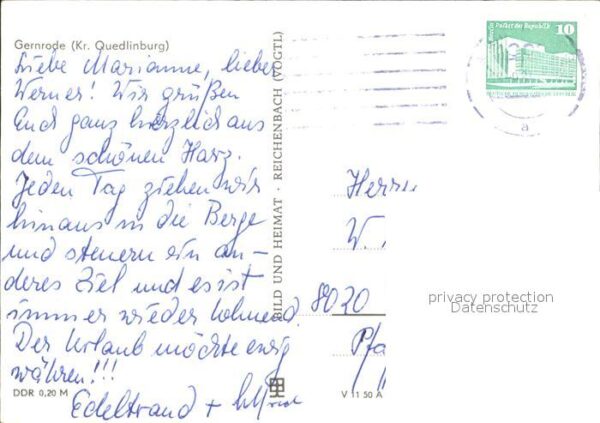 Gernrode (Kr. Quedlinburg)
Liebe Marianne, lieber
Werner! Wir grüßen
Euch ganz herzlich aus
dem schönen Harz.
Jeden Tag ziehen wir
hinaus in die Berge
und steuern ein an-
deres Ziel und es ist
immer wieder lohnend.
Der Urlaub möchte ewig
währen!!!
Edeltraud +
DDR 0,20 M
BILD UND HEIMAT · REICHENBACH (VOGTL)
V 11 50 A
Palast der Republik
10
a
Herrn
W.
8020
privacy protection
Datenschutz